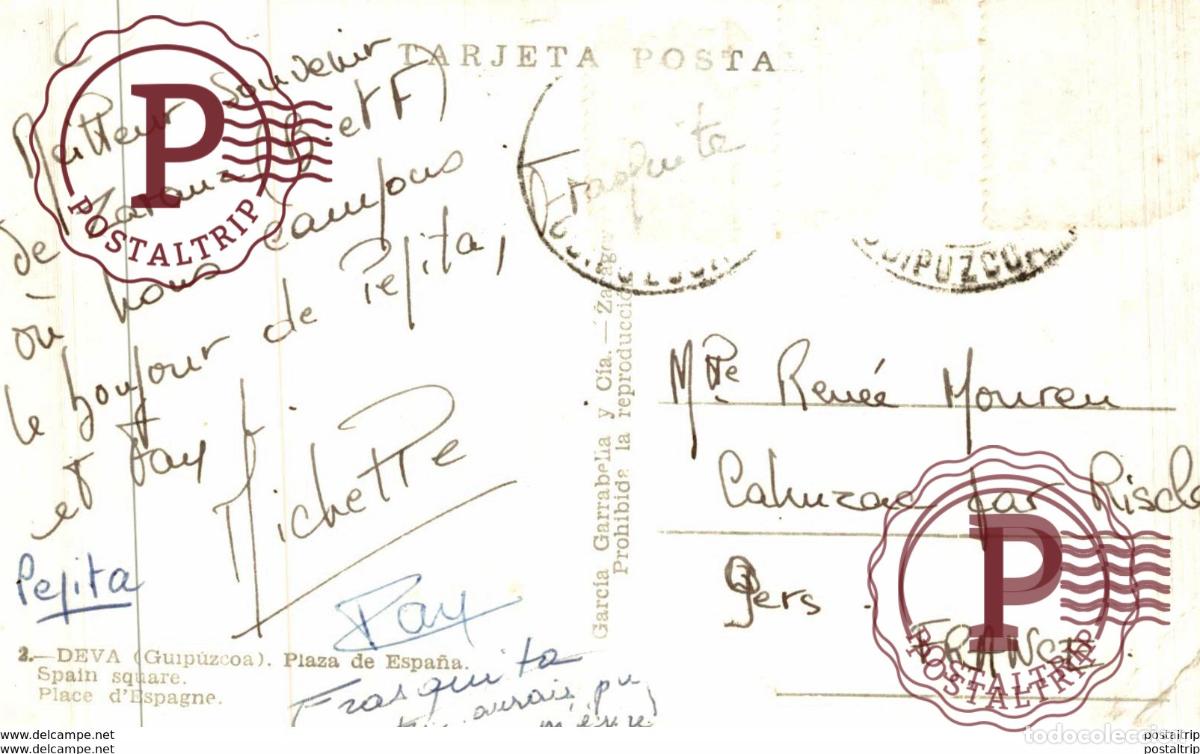 TARJETA POSTA
Meilleur Souvenir
de Zarauz (B. et F)
où nous campons
le bonjour de Pepita,
et Fay
Michette
Pepita
Fay
Frasquita
tu aurais pu
m'écrire
Frasquita
GUIPUZCOA
GUIPUZCOA
García Garrabella y Cía. — Zaragoza
Prohibida la reproducción
Mlle Renée Mouren
Cahuzac par Riscle
Gers.
FRANCE
2.—DEVA (Guipúzcoa). Plaza de España.
Spain square.
Place d'Espagne.
P
POSTALTRIP
P
POSTALTRIP
todocoleccion
www.delcampe.net
www.delcampe.net
postaltrip
postaltrip